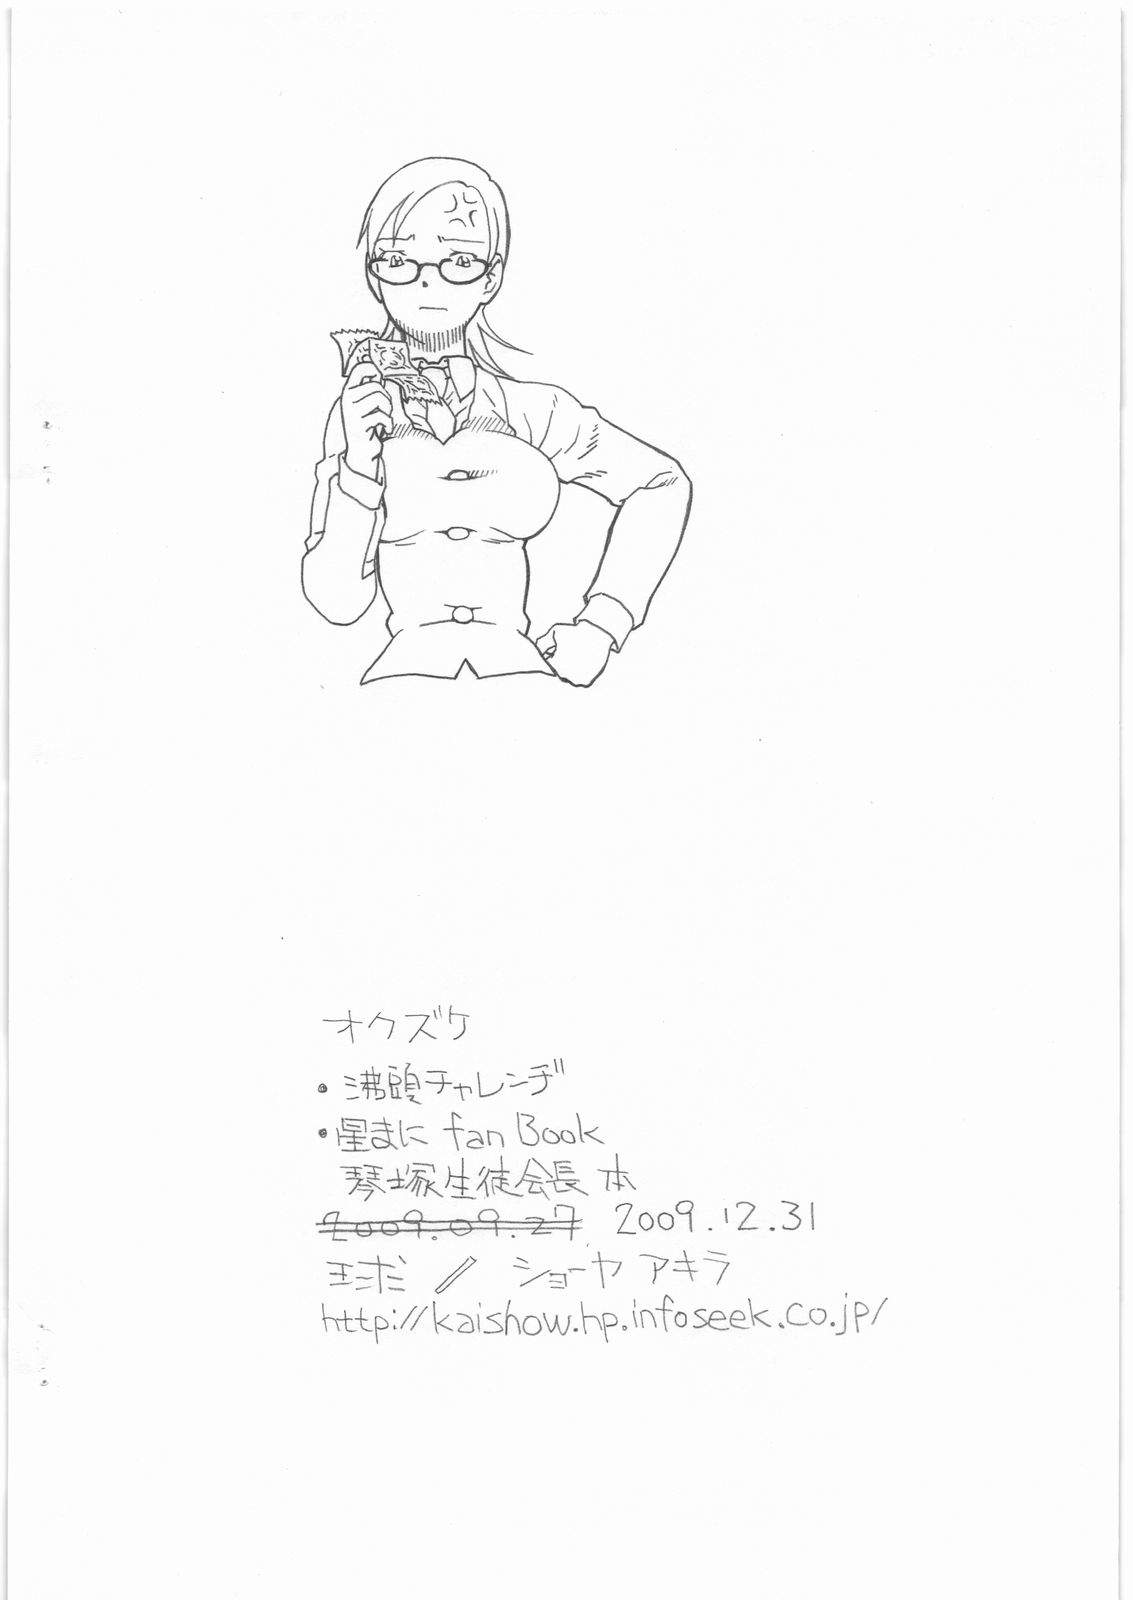 オクズケ
・沸頭チャレンヂ
・星まに fan Book
琴塚生徒会長 本
2009.09.27 2009.12.31
/ ショーヤ アキラ
http://kaishow.hp.infoseek.co.jp/